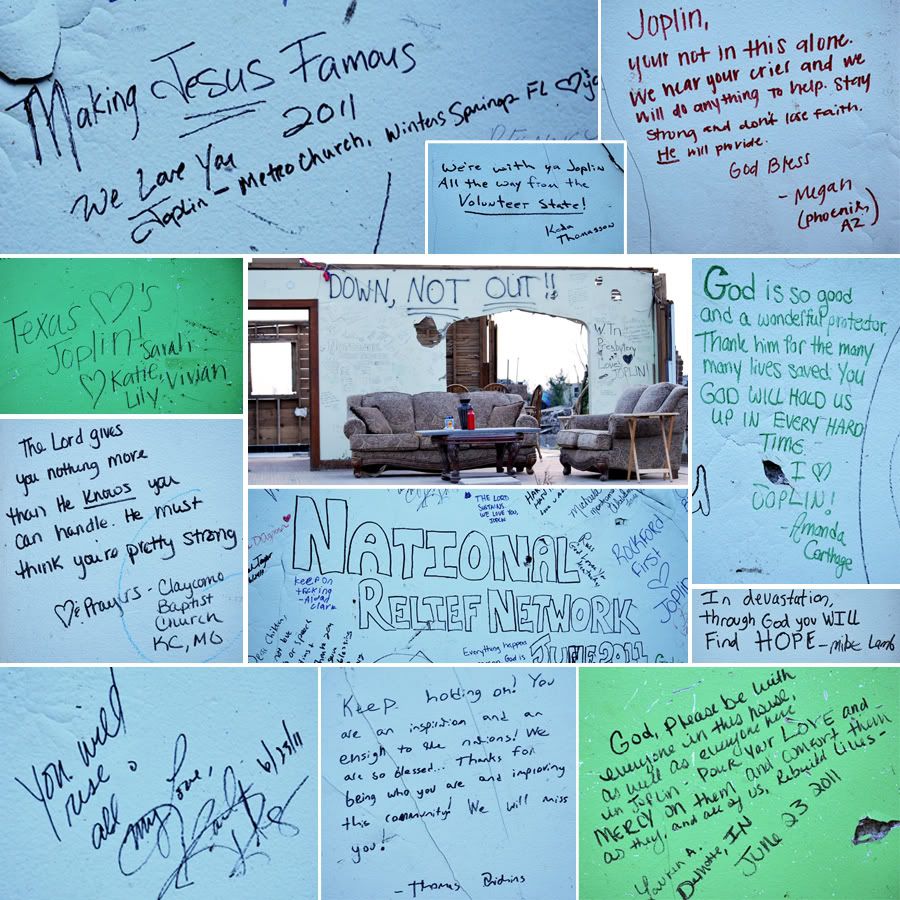 Making Jesus Famous
2011
We Love You
Joplin - Metro Church, Winter Springs FL
We're with ya Joplin
All the way from the
Volunteer State!
Joplin,
your not in this alone.
We hear your cries and we
will do anything to help. Stay
strong and don't lose faith.
He will provide.
God Bless
- Megan
(Phoenix,
AZ)
Texas ♡'s
Joplin!
Sarah
♡ Katie, Vivian
Lily
DOWN, NOT OUT!!
WTn
Presbytery
Loves
JOPLIN!
God is so good
and a wonderful protector.
Thank him for the many
many lives saved. You
GOD WILL HOLD US
UP IN EVERY HARD
TIME.
I ♡
JOPLIN!
- Amanda
Carthage
The Lord gives
you nothing more
than He knows you
can handle. He must
think you're pretty strong.
♡ & Prayers - Claycomo
Baptist
Church
KC, MO
THE LORD
SUSTAINS
WE LOVE YOU,
JOPLIN
Michelle
NATIONAL
RELIEF NETWORK
JUNE 2011
keep on
Clark
Rockford
First
♡
Joplin
Everything happens
God is
In devastation,
through God you WILL
Find HOPE - Mike Lamb
You will
rise
all my love,
6/23/11
Keep holding on! You
are an inspiration and an
ensign to the nations! We
are so blessed... Thanks for
being who you are and improving
this community! We will miss
you!
- Thomas
God, please be with
everyone in this house,
as well as everyone here
in Joplin - Pour your LOVE and
MERCY on them and comfort them
as they, and all of us, Rebuild lives -
Lauren A.
Demotte, IN
June 23 2011